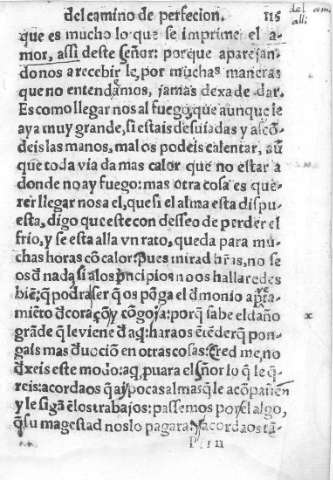 del camino de perfecion. 115
del camino
alli
que es mucho lo que se imprime el a-
mor, assi deste señor: porque aparejan-
donos a recebir le, por muchas maneras
que no entendamos, jamas dexa de dar.
Es como llegar nos al fuego, que aunque le
aya muy grande, si estais desuiadas y ascō-
deis las manos, mal os podeis calentar, aū
que toda vía da mas calor que no estar a
donde no ay fuego: mas otra cosa es que-
rer llegar nos a el, que si el alma esta dispu-
esta, digo que este con desseo de perder el
frío, y se esta alla vn rato, queda para mu-
chas horas cō calor. Pues mirad hr̄as, no se
os d̄ nada si a los prīncipios no os hallaredes
biē: q̄ podra ser q̄ os pōga el d̄monio apre-
miēto d̄ coraçō y cōgoja: porq̄ sabe el daño
grāde q̄ le viene d̄ aq̄: haraos ētēder q̄ pon-
gais mas d̄uoció en otras cosas: Cred me, no
d̄xeis este modo: aq̄ puara el señor lo q̄ le q̄-
reis: acordaos q̄ ay pocas almas q̄ le acōpañen
y le sigā ē los trabajos: passemos por el algo,
q̄ su magestad nos lo pagara y acordaos tā-